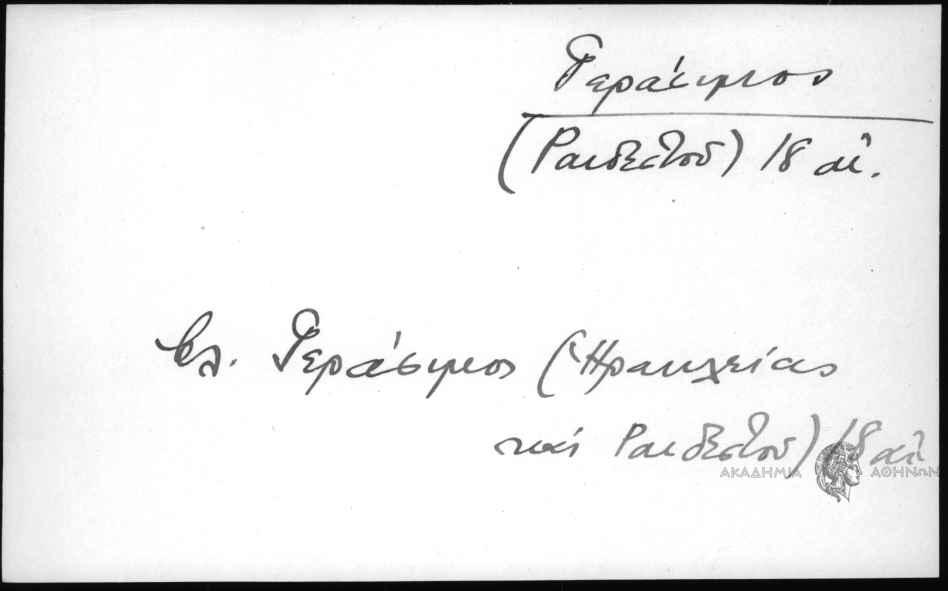 Γεράσιμος
(Ραιδεστοῦ) 18 αἰ.
βλ. Γεράσιμος (Ἡρακλείας
καὶ Ραιδεστοῦ) 18 αἰ.
ΑΚΑΔΗΜΙΑ ΑΘΗΝΩΝ